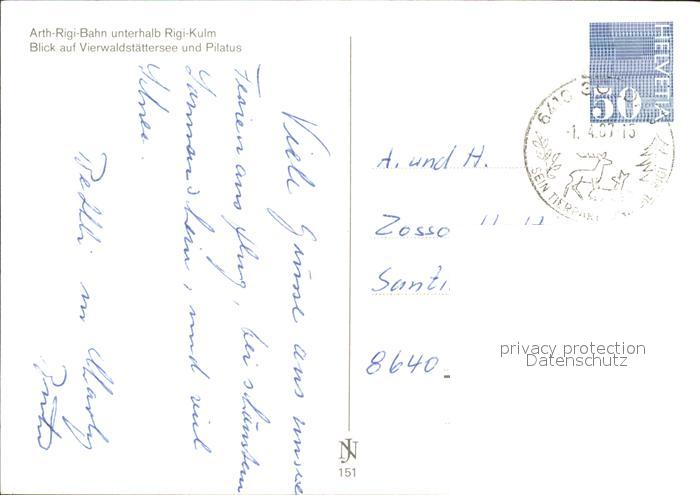 Arth-Rigi-Bahn unterhalb Rigi-Kulm
Blick auf Vierwaldstättersee und Pilatus
Viele Grüsse aus unserem
Ferien ausflug, bei schönstem
Sonnenschein, und viel
Schnee.
HELVETIA
50
6410
-1.4.87 15
SEIN TIERPARK
A. und H.
Zosso
Santi
8640
privacy protection
Datenschutz
NJ
151